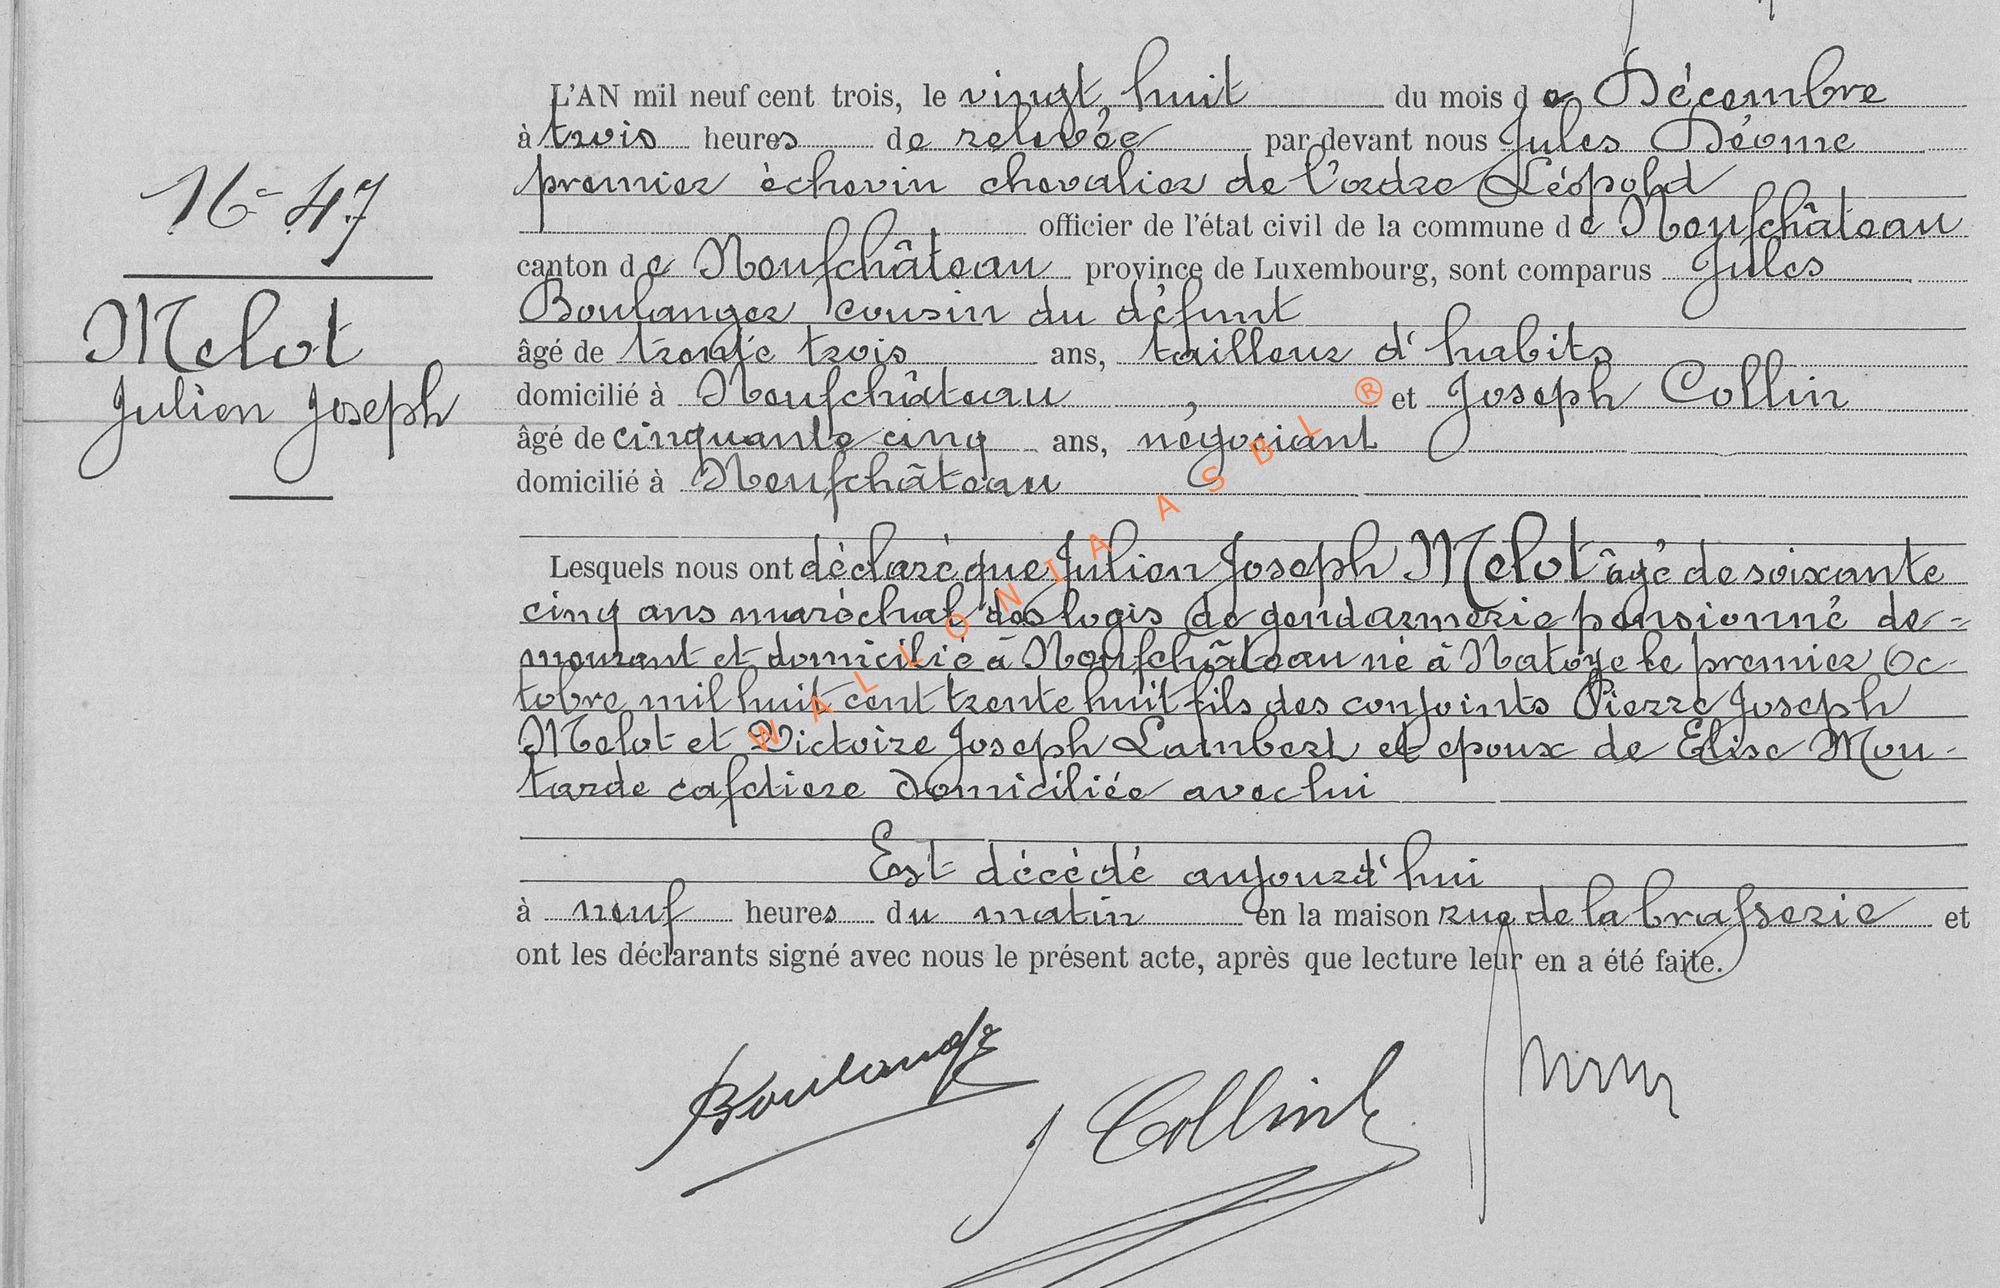 L'AN mil neuf cent trois, le vingt huit du mois de Décembre
à trois heures de relevée par devant nous Jules Déome
premier échevin chevalier de l'ordre Léopold
officier de l'état civil de la commune de Neufchâteau
canton de Neufchâteau province de Luxembourg, sont comparus Jules
Boulanger cousin du défunt
âgé de trente trois ans, tailleur d'habits
domicilié à Neufchâteau, et Joseph Collin
âgé de cinquante cinq ans, négociant
domicilié à Neufchâteau
N° 47
Melot
Julien Joseph
Lesquels nous ont déclaré que Julien Joseph Melot âgé de soixante
cinq ans maréchal des logis de gendarmerie pensionné de=
meurant et domicilié à Neufchâteau né à Natoye le premier Oc-
tobre mil huit cent trente huit fils des conjoints Pierre Joseph
Melot et Victoire Joseph Lambert et epoux de Elise Mou-
tarde cafetiere domiciliée avec lui
Est décédé aujourd'hui
à neuf heures du matin en la maison rue de la brasserie et
ont les déclarants signé avec nous le présent acte, après que lecture leur en a été faite.
Boulanger
J Collin
WALLONIA ASBL ®